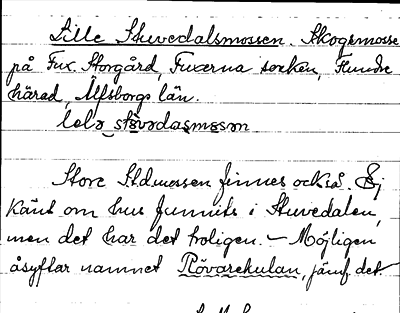 Lille Stuvedalsmossen. Skogsmosse
på Fux. Storgård, Fuxerna socken, Flundre
härad, Älfsborgs län.
lelə stʉvədasmɯsən
Store Stdmossen finnes också. Ej
känt om hus funnits i Stuvedalen,
men det har det troligen. – Möjligen
åsyftar namnet Rövarekulan, jämf det